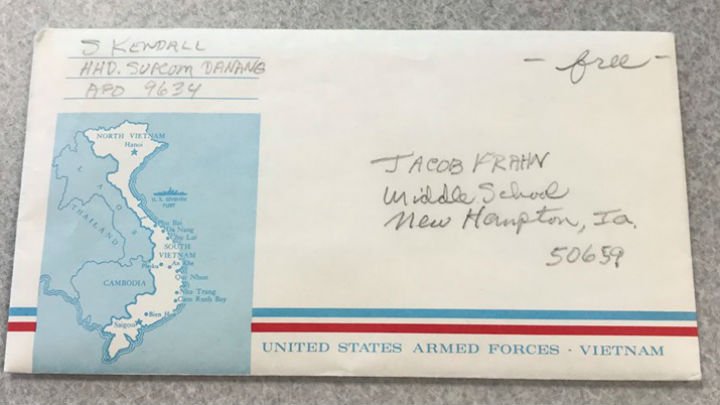 S KENDALL
HHD. SUPCOM DANANG
APO 9634
- free -
JACOB KRAHN
Middle School
New Hampton, Ia.
50659
NORTH VIETNAM
Hanoi
LAOS
THAILAND
U. S. SEVENTH
FLEET
Phu Bai
Da Nang
Chu Lai
SOUTH
VIETNAM
Pleiku An Khe
Qui Nhon
CAMBODIA
Nha Trang
Cam Ranh Bay
Bien H
Saigon
UNITED STATES ARMED FORCES · VIETNAM